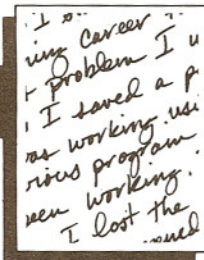 I
career
problem I
I saved a p
as working usi
rious program
een working.
I lost the